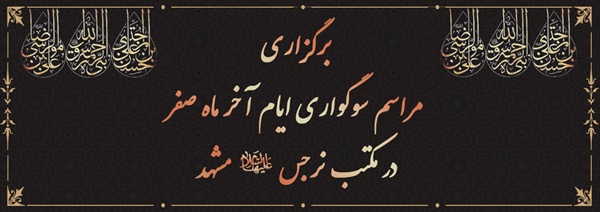 برگزاری
مراسم سوگواری ایام آخر ماه صفر
در مکتب نرجس علیهاالسلام مشهد